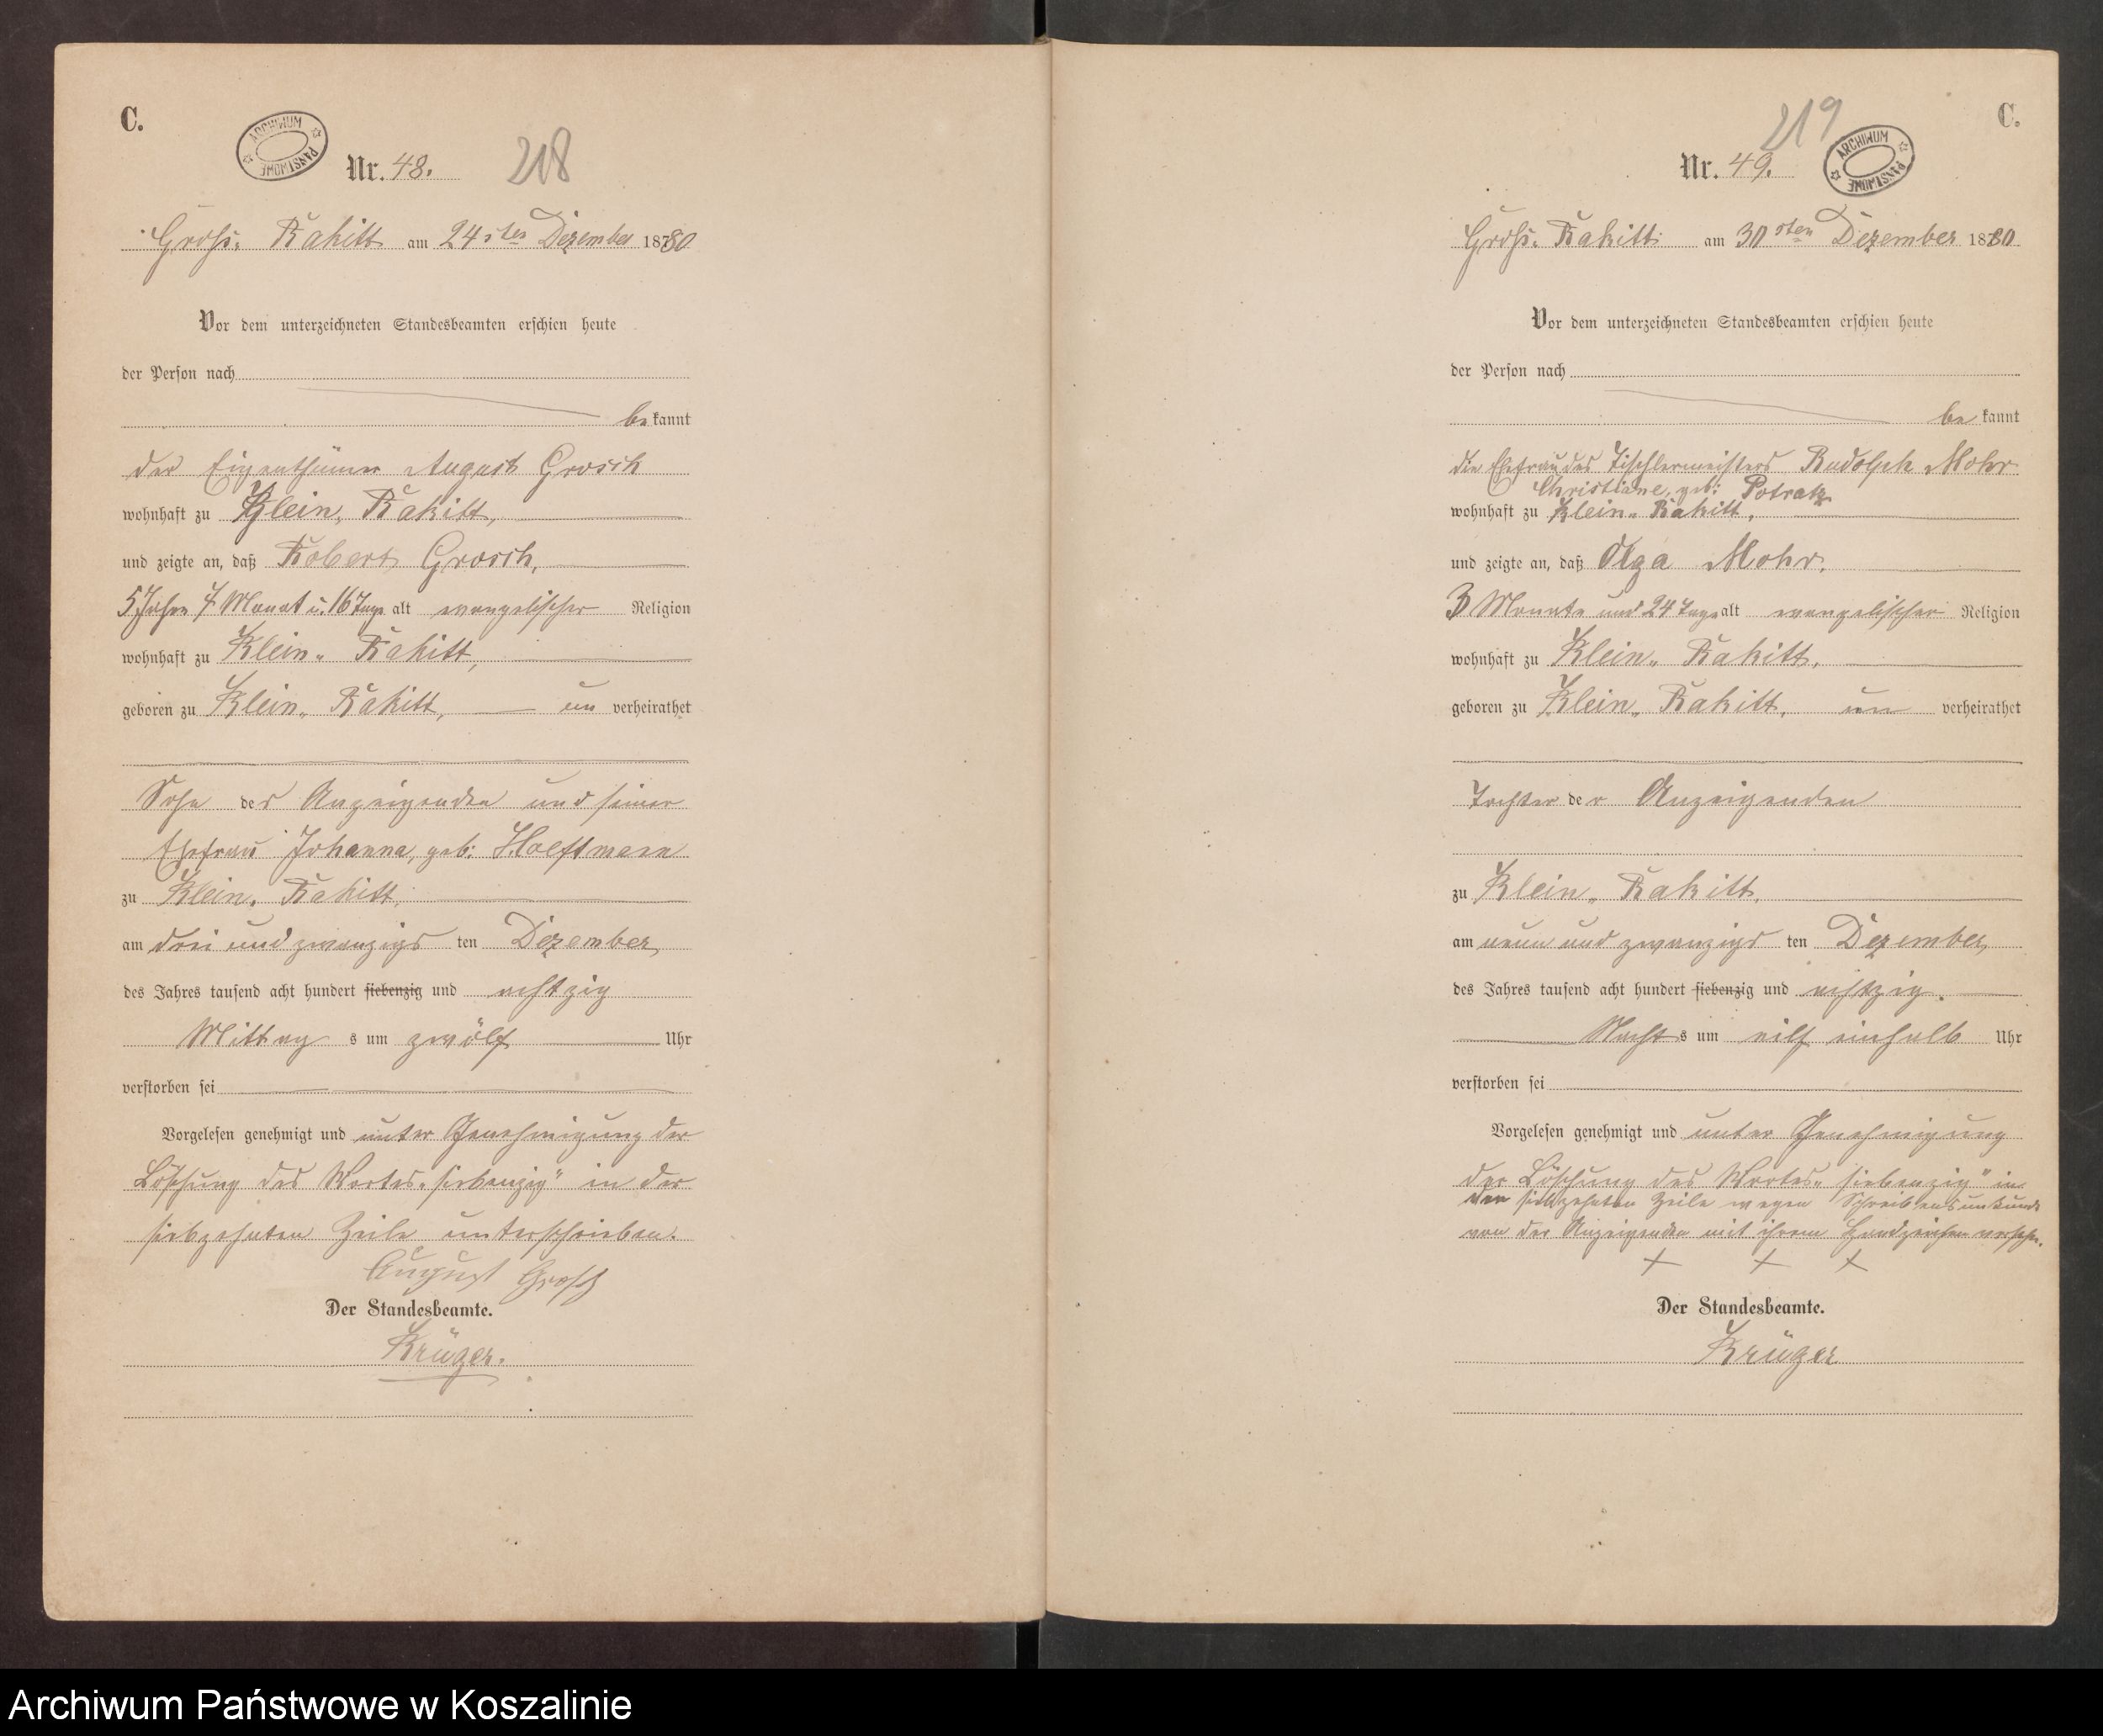 C.
ARCHIWUM PAŃSTWOWE
Nr. 48.
218
Groß- Rakitt am 24sten Dezember 1880
Vor dem unterzeichneten Standesbeamten erschien heute
der Person nach
bekannt
der Eigenthümer August Grosch
wohnhaft zu Klein- Rakitt,
und zeigte an, daß Robert Grosch,
5 Jahre 7 Monat u. 16 Tage alt evangelischer Religion
wohnhaft zu Klein- Rakitt,
geboren zu Klein- Rakitt, un verheirathet
Sohn des Anzeigenden und seiner
Ehefrau Johanna, geb:
zu Klein- Rakitt,
am drei und zwanzigsten Dezember,
des Jahres tausend acht hundert siebenzig und achtzig
Mittags um zwölf Uhr
verstorben sei
Vorgelesen genehmigt und unter Genehmigung der
Löschung des Wortes "siebenzig" in der
siebzehnten Zeile unterschrieben.
August Grosch
Der Standesbeamte.
Krüger.
C.
219
ARCHIWUM PAŃSTWOWE
Nr. 49.
Groß- Rakitt am 30sten Dezember 1880
Vor dem unterzeichneten Standesbeamten erschien heute
der Person nach
bekannt
die Ehefrau des Tischlermeisters Rudolph Mohr
Christiane, geb: Potratz
wohnhaft zu Klein- Rakitt,
und zeigte an, daß Olga Mohr,
3 Monate und 24 Tage alt evangelischer Religion
wohnhaft zu Klein- Rakitt,
geboren zu Klein- Rakitt, un verheirathet
Tochter der Anzeigenden
zu Klein- Rakitt,
am neun und zwanzigsten Dezember,
des Jahres tausend acht hundert siebenzig und achtzig.
Nachts um eilf einhalb Uhr
verstorben sei
Vorgelesen genehmigt und unter Genehmigung
der Löschung des Wortes "siebenzig" in
der siebzehnten Zeile wegen Schreibensunkunde
von der Anzeigenden mit ihrem Handzeichen versehn.
+ + +
Der Standesbeamte.
Krüger
Archiwum Państwowe w Koszalinie